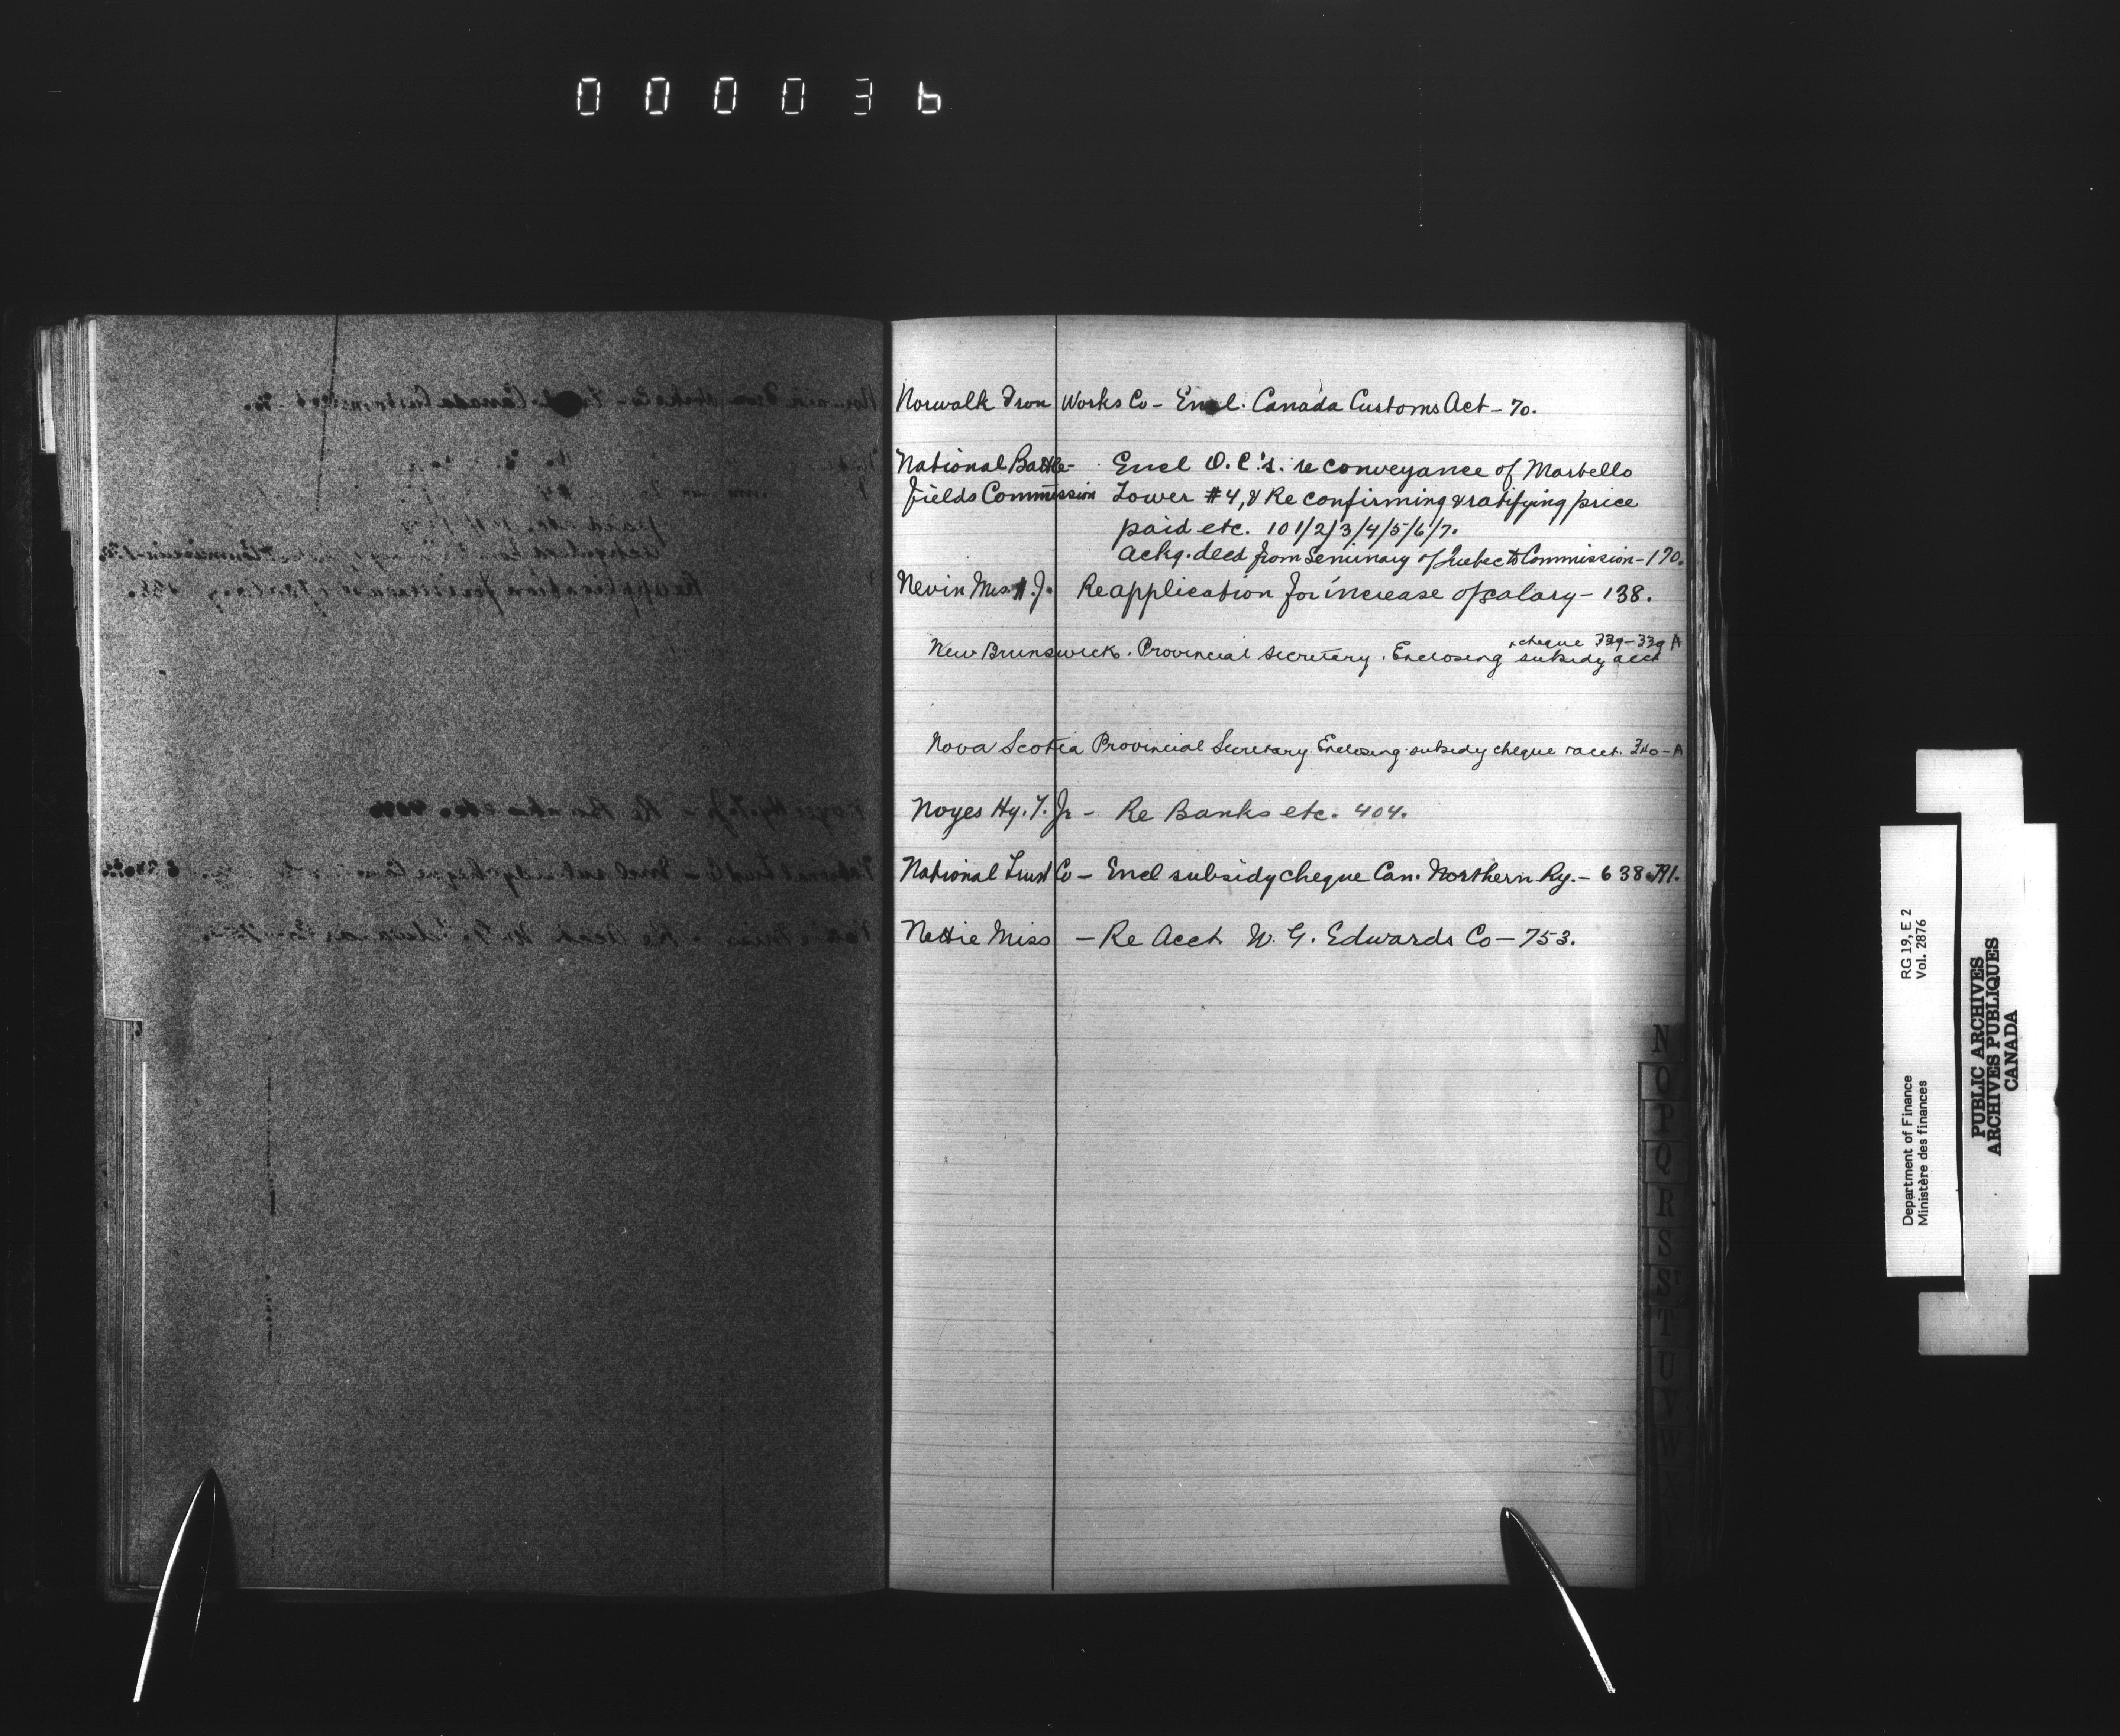 000036
Norwalk Iron Works Co - Encl. Canada Customs Act - 70.
National Battle- Encl O.C.'s. re conveyance of Martello
fields Commission Tower #4, & Re confirming & ratifying price
paid etc. 101/2/3/4/5/6/7.
ackg. deed from Seminary of Quebec to Commission - 170.
Nevin Miss J. Re application for increase of salary - 138.
cheque 339-339 A
New Brunswick. Provincial Secretary. Enclosing subsidy acct
Nova Scotia Provincial Secretary. Enclosing subsidy cheque & acct. 340-A
Noyes Hy. T. Jr - Re Banks etc. 404.
National Trust Co - Encl subsidy cheque Can. Northern Ry. - 638
Nettie Miss - Re Acct W. G. Edwards Co - 753.
N
O
P
Q
R
S
ST
T
U
V
W
X
Department of Finance RG 19, E 2
Ministère des finances Vol. 2876
PUBLIC ARCHIVES
ARCHIVES PUBLIQUES
CANADA